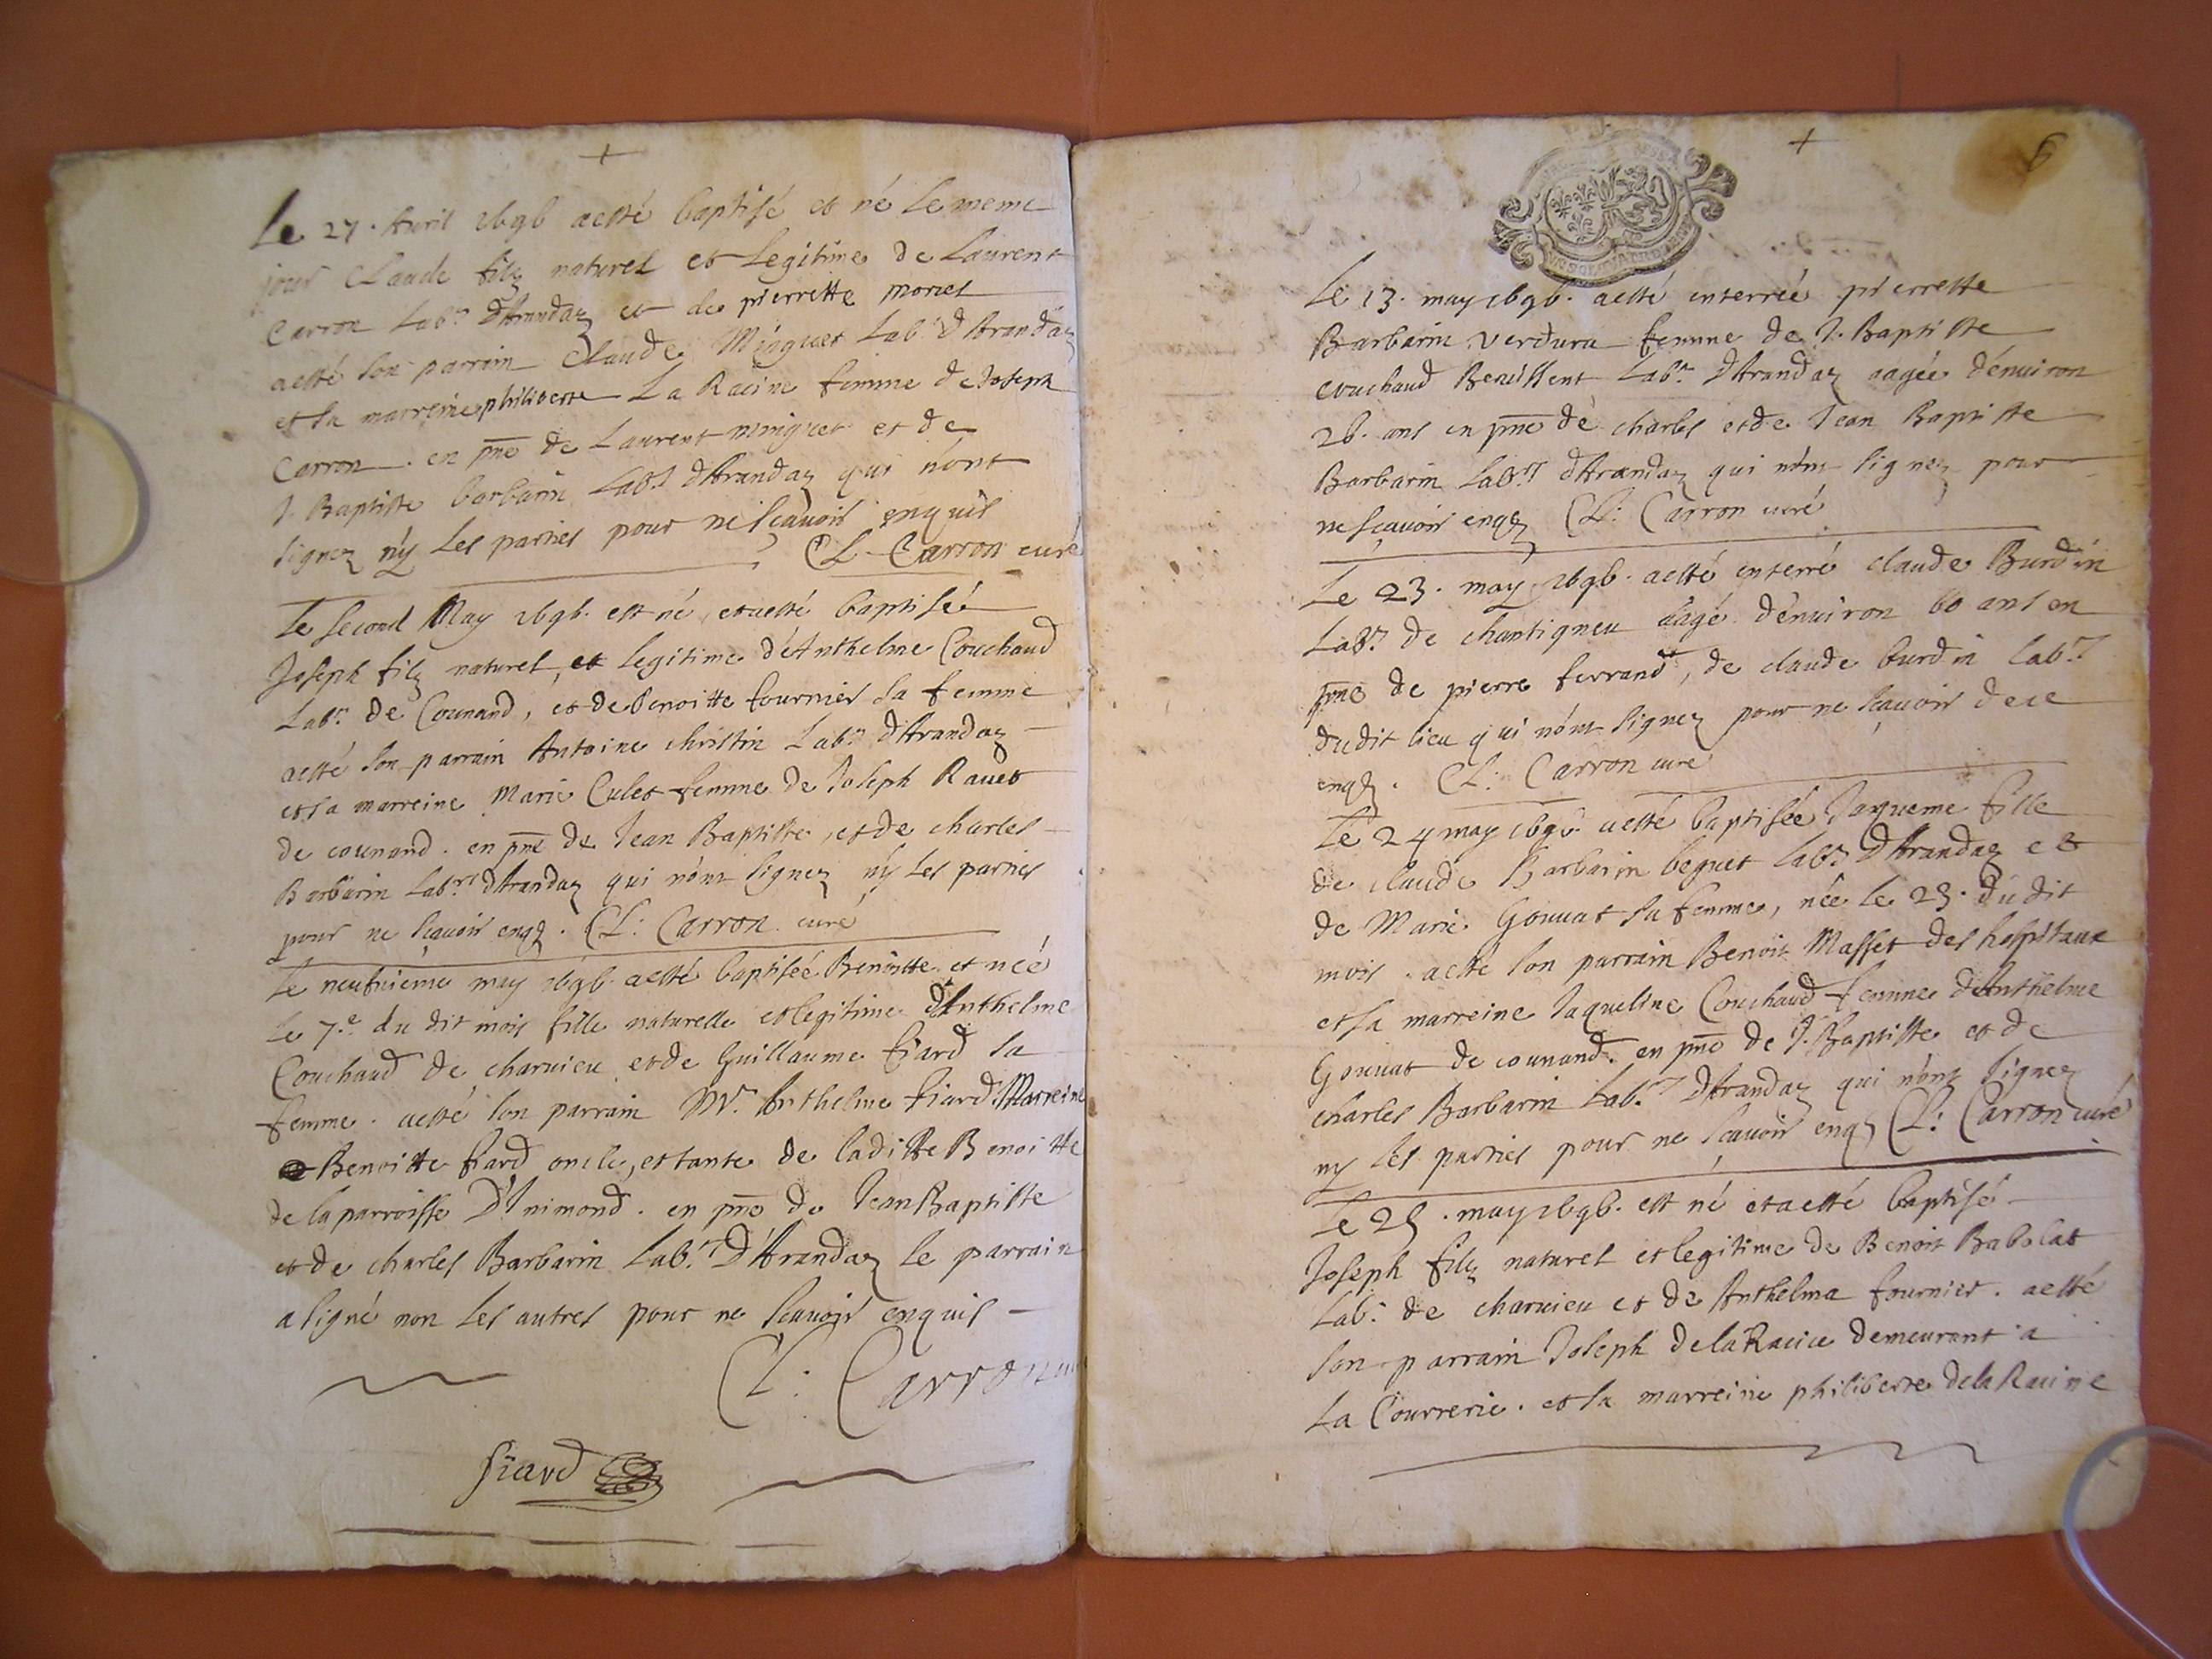 Le 27. Avril 1696 aesté baptisé et né le meme
jour Claude filz naturel et legitime de Laurent
Carron Labr. d'Arandaz et de pierrette morel
aesté son parrain Claude Minguet Labr. d'Arandaz
et sa marreine philiberte La Racine femme de Joseph
Carron. en pnce de Laurent minguet et de
J. Baptiste barbarin Labrs d'Arandaz qui n'ont
signez n'y Les parties pour ne sçavoir enquis
Cl. Carron curé
Le second May 1696. est né, et aesté baptisé
Joseph filz naturel, et legitime d'Anthelme Couchaud
Labr. de Counand, et de benoitte fournier sa femme
aesté son parrain Antoine christin Labr. d'Arandaz
et sa marreine Marie Culet femme de Joseph Ravet
de counand. en pnce de Jean Baptiste, et de charles
Barbarin Labrs d'Arandaz qui n'ont signez n'y Les parties
pour ne sçavoir enqz. Cl: Carron curé
Le neufvieme may 1696. aesté baptisée Benoitte et née
le 7.e du dit mois fille naturelle et legitime d'Anthelme
Couchaud de charvieu et de Guillaume fiard sa
femme. aesté son parrain Mr. Anthelme fiard Marreine
Benoitte fiard oncle, et tante de laditte Benoitte
de la parroisse D'Inimond. en pnce de Jean Baptiste
et de charles Barbarin Labrs D'Arandaz le parrain
a signé non Les autres pour ne sçavoir enquis
Cl: Carron
fiard
6
Le 13. may 1696. aesté enterrée pierrette
Barbarin verdura femme de J. Baptiste
couchaud Labr. d'Arandaz aagée d'environ
26. ans en pnce de charles et de Jean Baptiste
Barbarin Labrs d'Arandaz qui n'ont signez pour
ne sçavoir enqz Cl: Carron curé
Le 23. may 1696. aesté enterré claude Burdin
Labr. de chantigneu aagé d'environ 60 ans en
pnce de pierre ferrand, de claude burdin labrs
dudit lieu qui n'ont signez pour ne sçavoir de ce
enqz. Cl: Carron curé
Le 24 may 1696. aesté baptisée Jaqueme fille
de claude Barbarin beguet labr. d'Arandaz et
de Marie Gouvat sa femme, née le 23. du dit
mois. aeste son parrain Benoit Masset des hospitaux
et sa marreine Jaqueline Couchaud femme d'Anthelme
Gouvat de counand. en pnce de J. Baptiste et de
charles Barbarin Labrs d'Arandaz qui n'ont signez
ny les parties pour ne sçavoir enqz Cl: Carron curé
Le 25. may 1696. est né et aesté baptisé
Joseph filz naturel et legitime de Benoit Babolat
Labr. de charvieu et de Anthelma fournier. aesté
son parrain Joseph dela Racine demeurant a
La Courrerie. et sa marreine philiberte dela Racine